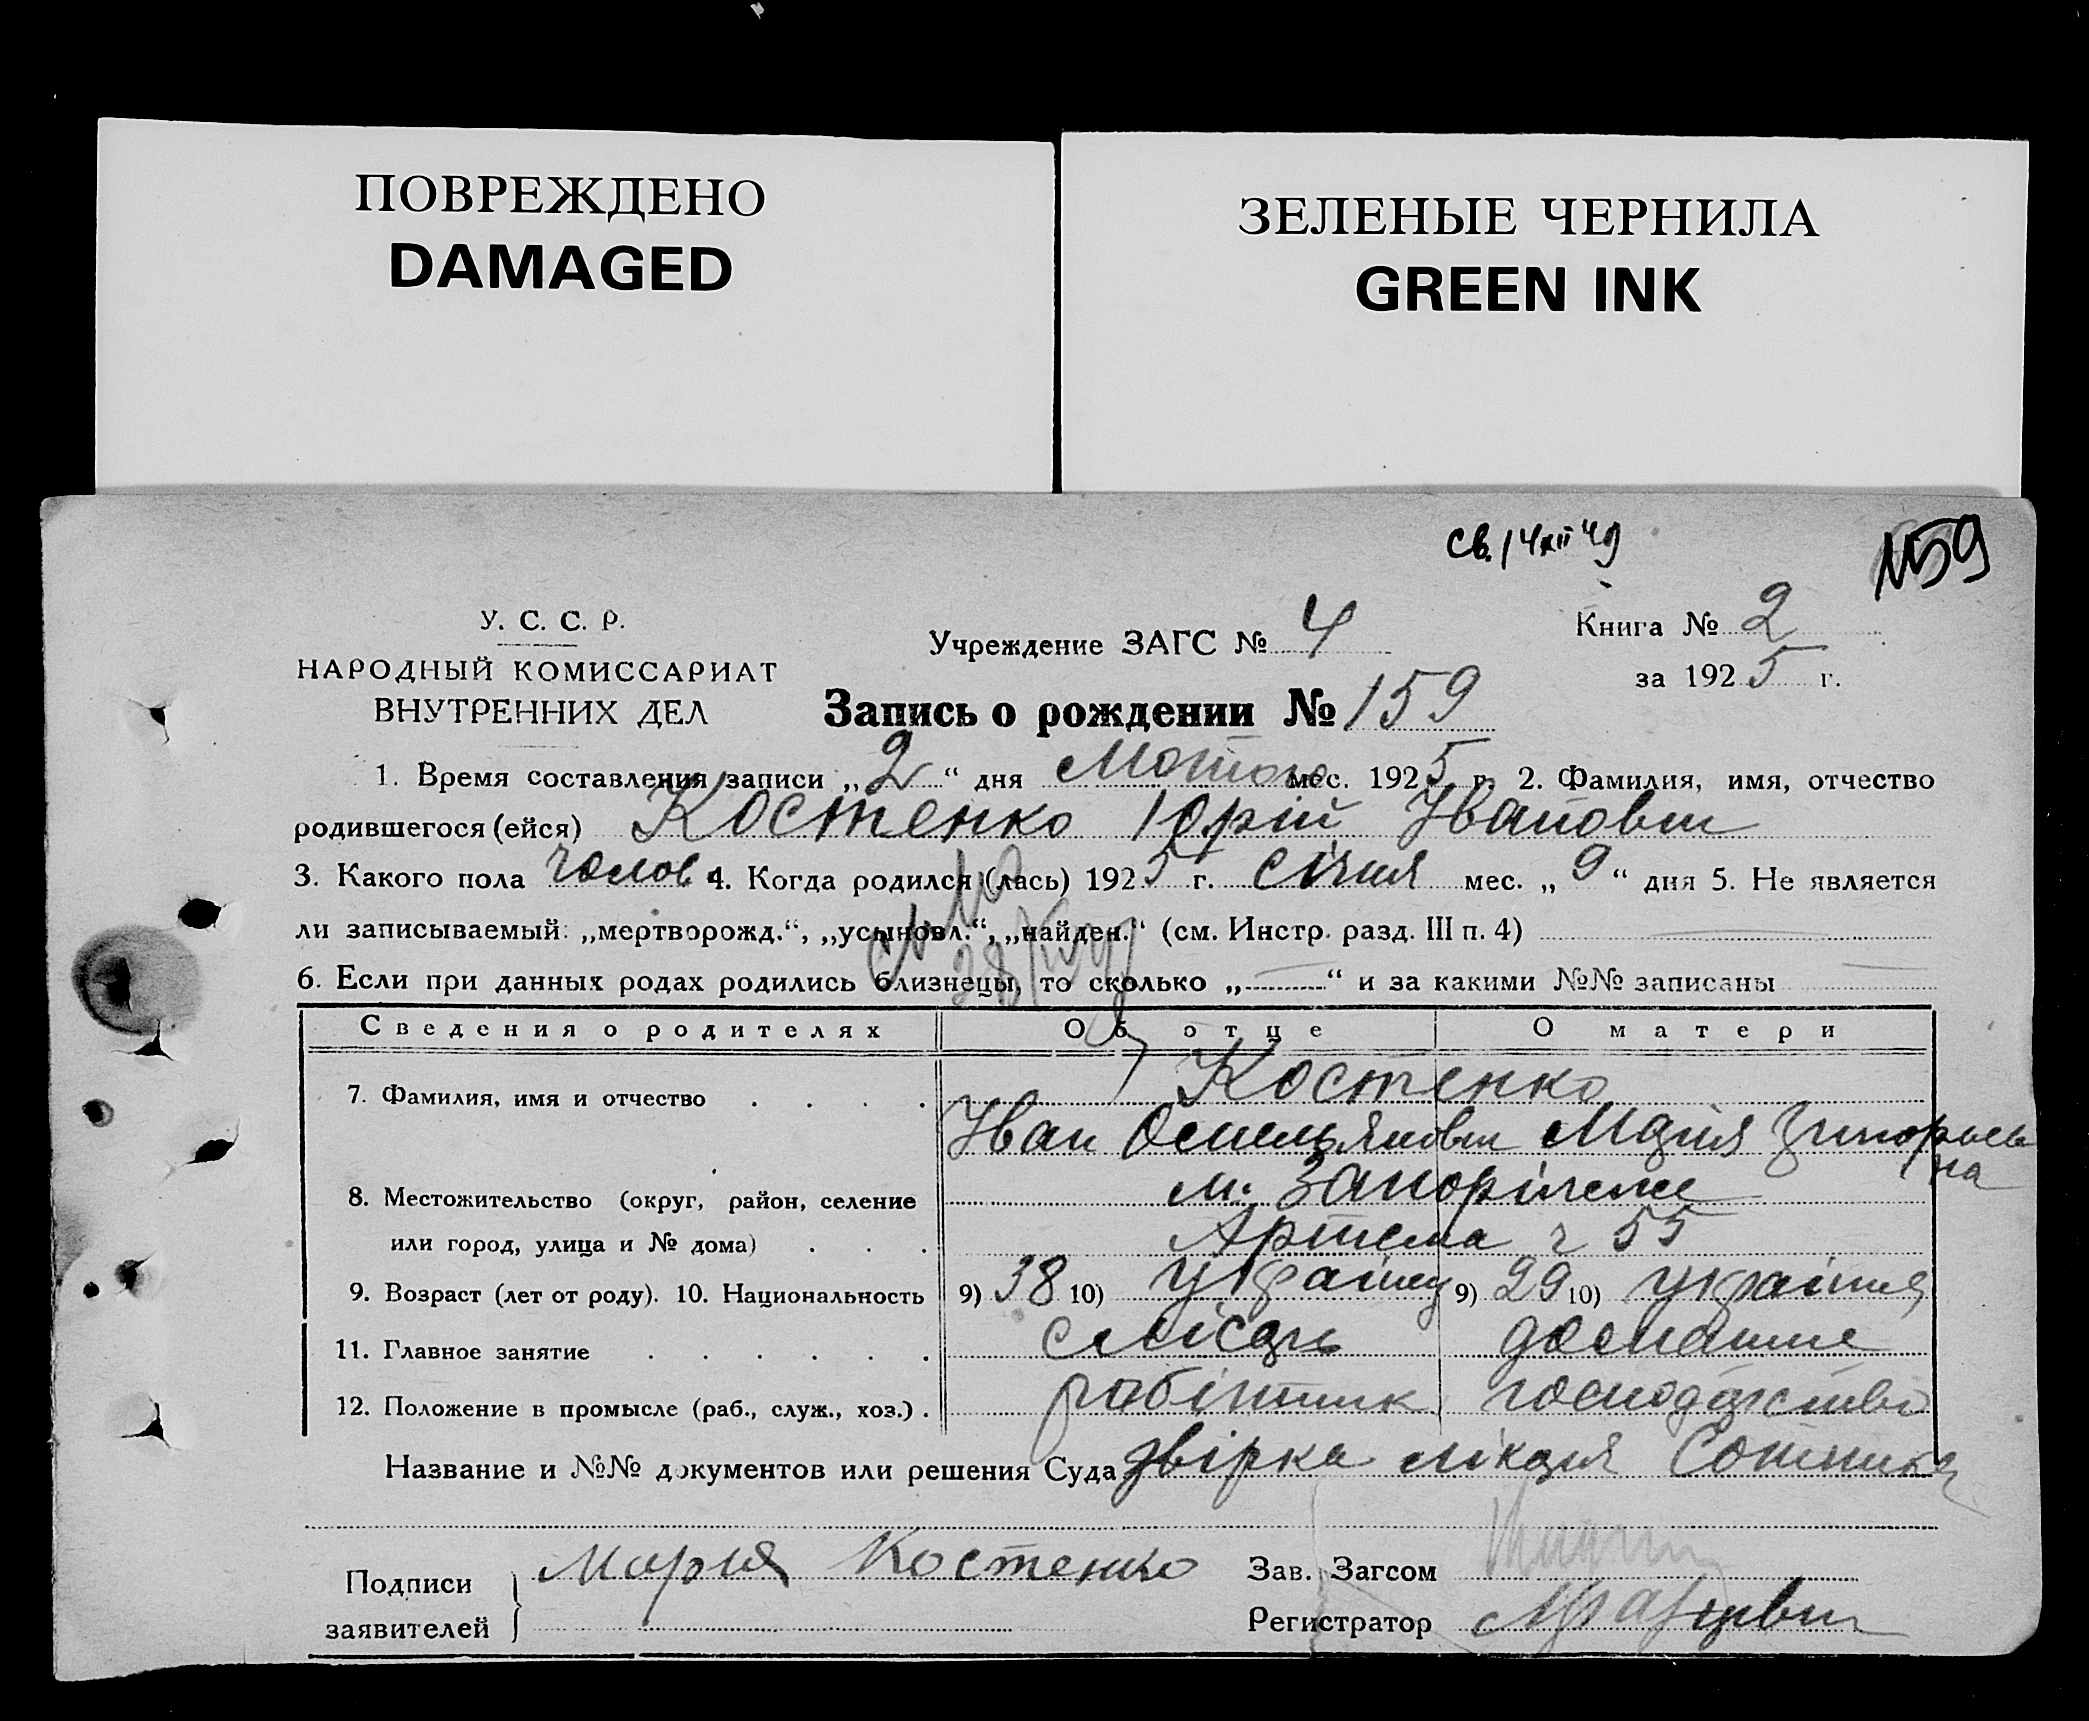 ПОВРЕЖДЕНО
DAMAGED
ЗЕЛЕНЫЕ ЧЕРНИЛА
GREEN INK
св. 14 XII 49
159
У. С. С. Р.
НАРОДНЫЙ КОМИССАРИАТ
ВНУТРЕННИХ ДЕЛ
Учреждение ЗАГС № 4
Книга № 2
за 1925 г.
Запись о рождении № 159
1. Время составления записи „2“ дня Лютого мес. 1925 г. 2. Фамилия, имя, отчество
родившегося (ейся) Костенко Юрій Іванович
3. Какого пола чолов. 4. Когда родился (лась) 1925 г. січня мес. „9“ дня 5. Не является
ли записываемый: „мертворожд.“, „усыновл.“, „найден.“ (см. Инстр. разд. III п. 4)
6. Если при данных родах родились близнецы, то сколько „ “ и за какими №№ записаны
Сведения о родителях Об отце О матери
7. Фамилия, имя и отчество Костенко
Іван Омельянович Марія Григорьевна
8. Местожительство (округ, район, селение м. Запоріжже
или город, улица и № дома) Артема ч 55
9. Возраст (лет от роду). 10. Национальность 9) 38 10) україн 9) 29 10) україн
11. Главное занятие слюсарь домашне
12. Положение в промысле (раб., служ., хоз.) робітник господарство
Название и №№ документов или решения Суда довірка лікаря Сотника
Подписи
заявителей
Мария Костенко
Зав. Загсом
Регистратор